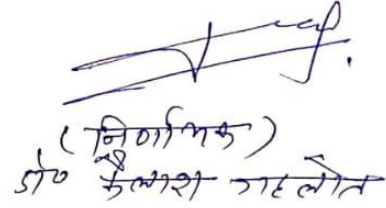 (निर्णायक)
डॉ० कैलाश गहलोत